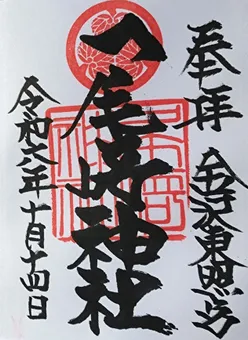 奉拝
金沢東照宮
尾崎神社
令和六年十月十四日